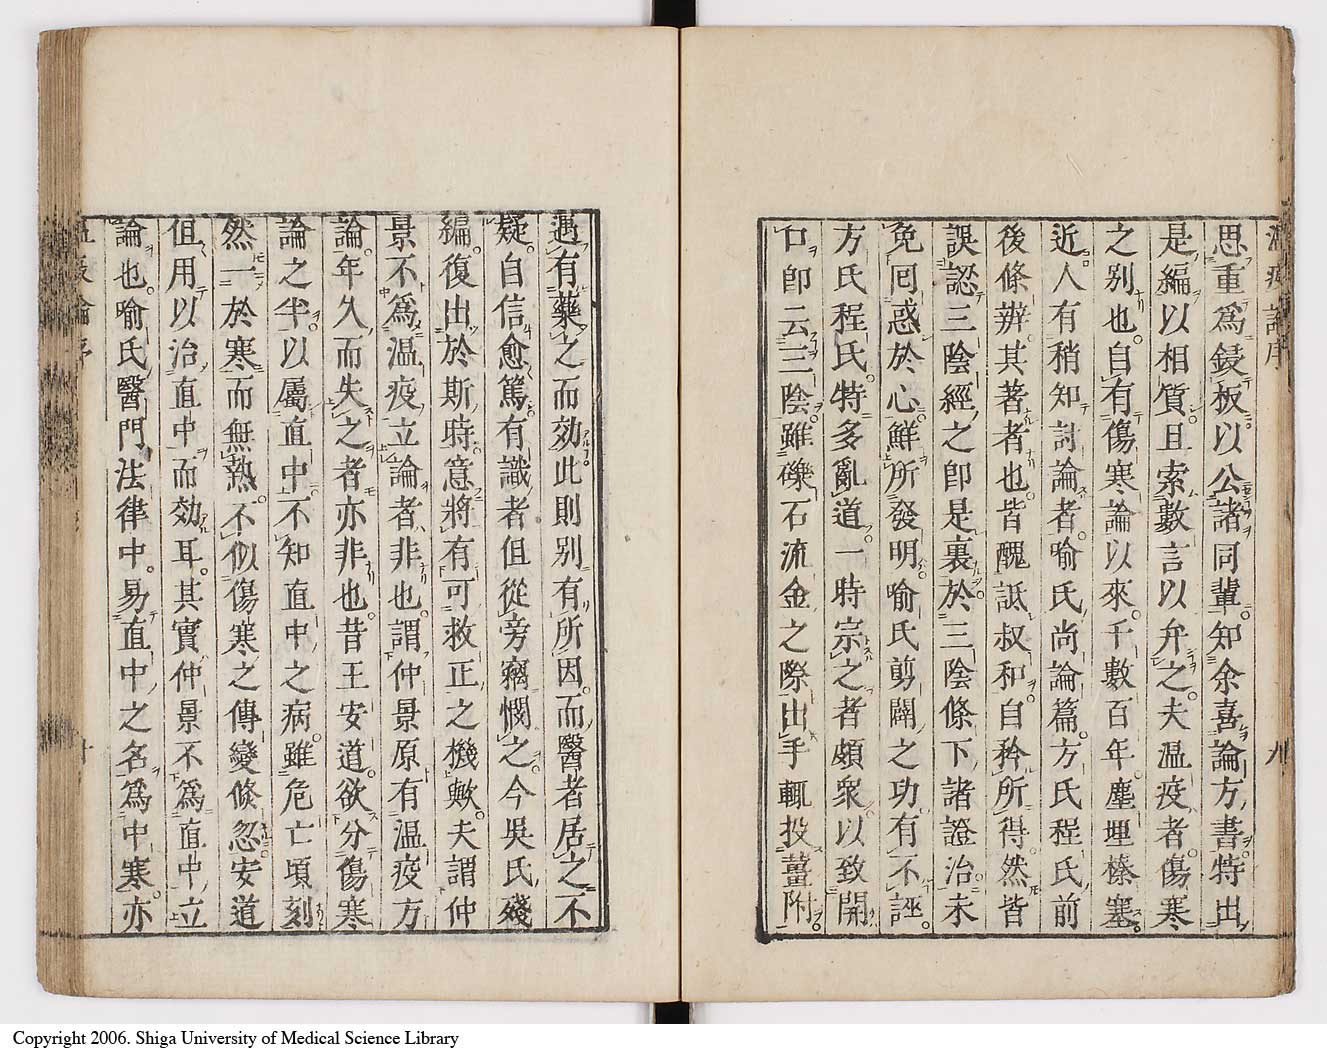 思重爲鋟板以公諸同輩知余喜論方書特出
是編以相質且索數言以弁之夫温疫者傷寒
之別也自有傷寒論以來千數百年塵埋榛塞
近人有稍知討論者喻氏尚論篇方氏程氏前
後條辨其著者也皆醜詆叔和自矜所得然皆
誤認三陰經之即是裏於三陰條下諸證治未
免囘惑於心鮮所發明喻氏剪闢之功有不誣
方氏程氏特多亂道一時宗之者頗衆以致開
口即云三陰雖礫石流金之際出手輒投薑附
遇有藥之而効此則別有所因而醫者居之不
疑自信愈篤有識者但從旁竊憫之今吳氏殘
編復出於斯時意將有可救正之機歟夫謂仲
景不爲温疫立論者非也謂仲景原有温疫方
論年久而失之者亦非也昔王安道欲分傷寒
論之半以屬直中不知直中之病雖危亡頃刻
然一於寒而無熱不似傷寒之傳變倐忽安道
但用以治直中而効耳其實仲景不爲直中立
論也喻氏醫門法律中易直中之名爲中寒亦
Copyright 2006. Shiga University of Medical Science Library